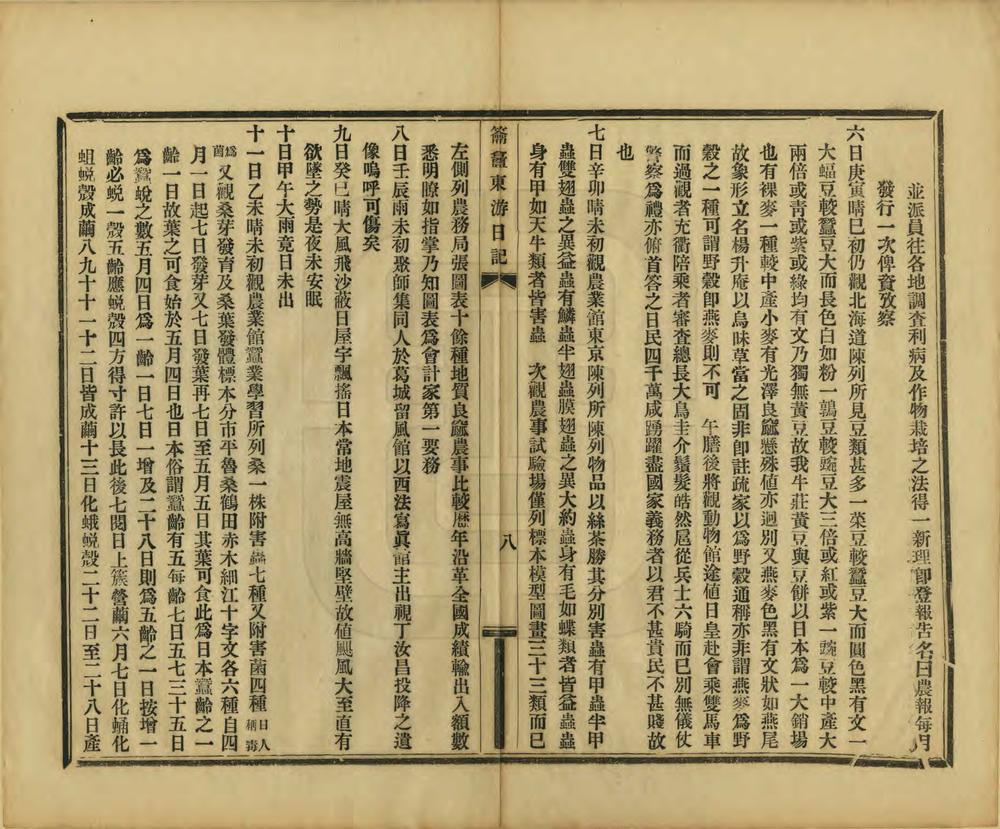 並派員往各地調査利病及作物栽培之法得一新理卽登報吿名曰農報每月
發行一次俾資攷察
六日庚寅晴巳初仍觀北海道陳列所見豆類甚多一菜豆較蠶豆大而圓色黑有文一
大蝠豆較蠶豆大而長色白如粉一鶉豆較豌豆大三倍或紅或紫一豌豆較中產大
兩倍或青或紫或綠均有文乃獨無黃豆故我牛莊黃豆與豆餅以日本爲一大銷場
也有裸麥一種較中產小麥有光澤良窳懸殊値亦迥別又燕麥色黑有文狀如燕尾
故象形立名楊升庵以烏昧草當之固非卽註疏家以爲野穀通稱亦非謂燕麥爲野
穀之一種可謂野穀卽燕麥則不可　午膳後將觀動物館途値日皇赴會乘雙馬車
而過觀者充衢陪乘者審査總長大鳥圭介鬚髮皓然扈從兵士六騎而已別無儀仗
警察爲禮亦俯首答之日民四千萬咸踴躍盡國家義務者以君不甚貴民不甚賤故
也
七日辛卯晴未初觀農業館東京陳列所陳列物品以絲茶勝其分別害蟲有甲蟲半甲
蟲雙翅蟲之異益蟲有鱗蟲半翅蟲膜翅蟲之異大約蟲身有毛如蝶類者皆益蟲蟲
身有甲如天牛類者皆害蟲　次觀農事試驗場僅列標本模型圖畫三十三類而已
籥盦東游日記
八
左側列農務局張圖表十餘種地質良窳農事比較歷年沿革全國成績輸出入額數
悉明瞭如指掌乃知圖表爲會計家第一要務
八日壬辰雨未初聚師集同人於葛城留風館以西法寫眞館主出視丁汝昌投降之遺
像嗚呼可傷矣
九日癸巳晴大風飛沙蔽日屋宇飄搖日本常地震屋無高牆堅壁故値颶風大至直有
欲墜之勢是夜未安眠
十日甲午大雨竟日未出
十一日乙未晴未初觀農業館蠶業學習所列桑一株附害蟲七種又附害菌四種日人稱毒
爲菌又觀桑芽發育及桑葉發體標本分市平魯桑鶴田赤木細江十字文各六種自四
月一日起七日發芽又七日發葉再七日至五月五日其葉可食此爲日本蠶齡之一
齡一日故葉之可食始於五月四日也日本俗謂蠶齡有五每齡七日五七三十五日
爲蠶蛻之數五月四日爲一齡一日七日一增及二十八日則爲五齡之一日按增一
齡必蛻一殼五齡應蛻殼四方得寸許以長此後七閱日上簇營繭六月七日化蛹化
蛆蛻殼成繭八九十十一十二日皆成繭十三日化蛾蛻殼二十二日至二十八日產